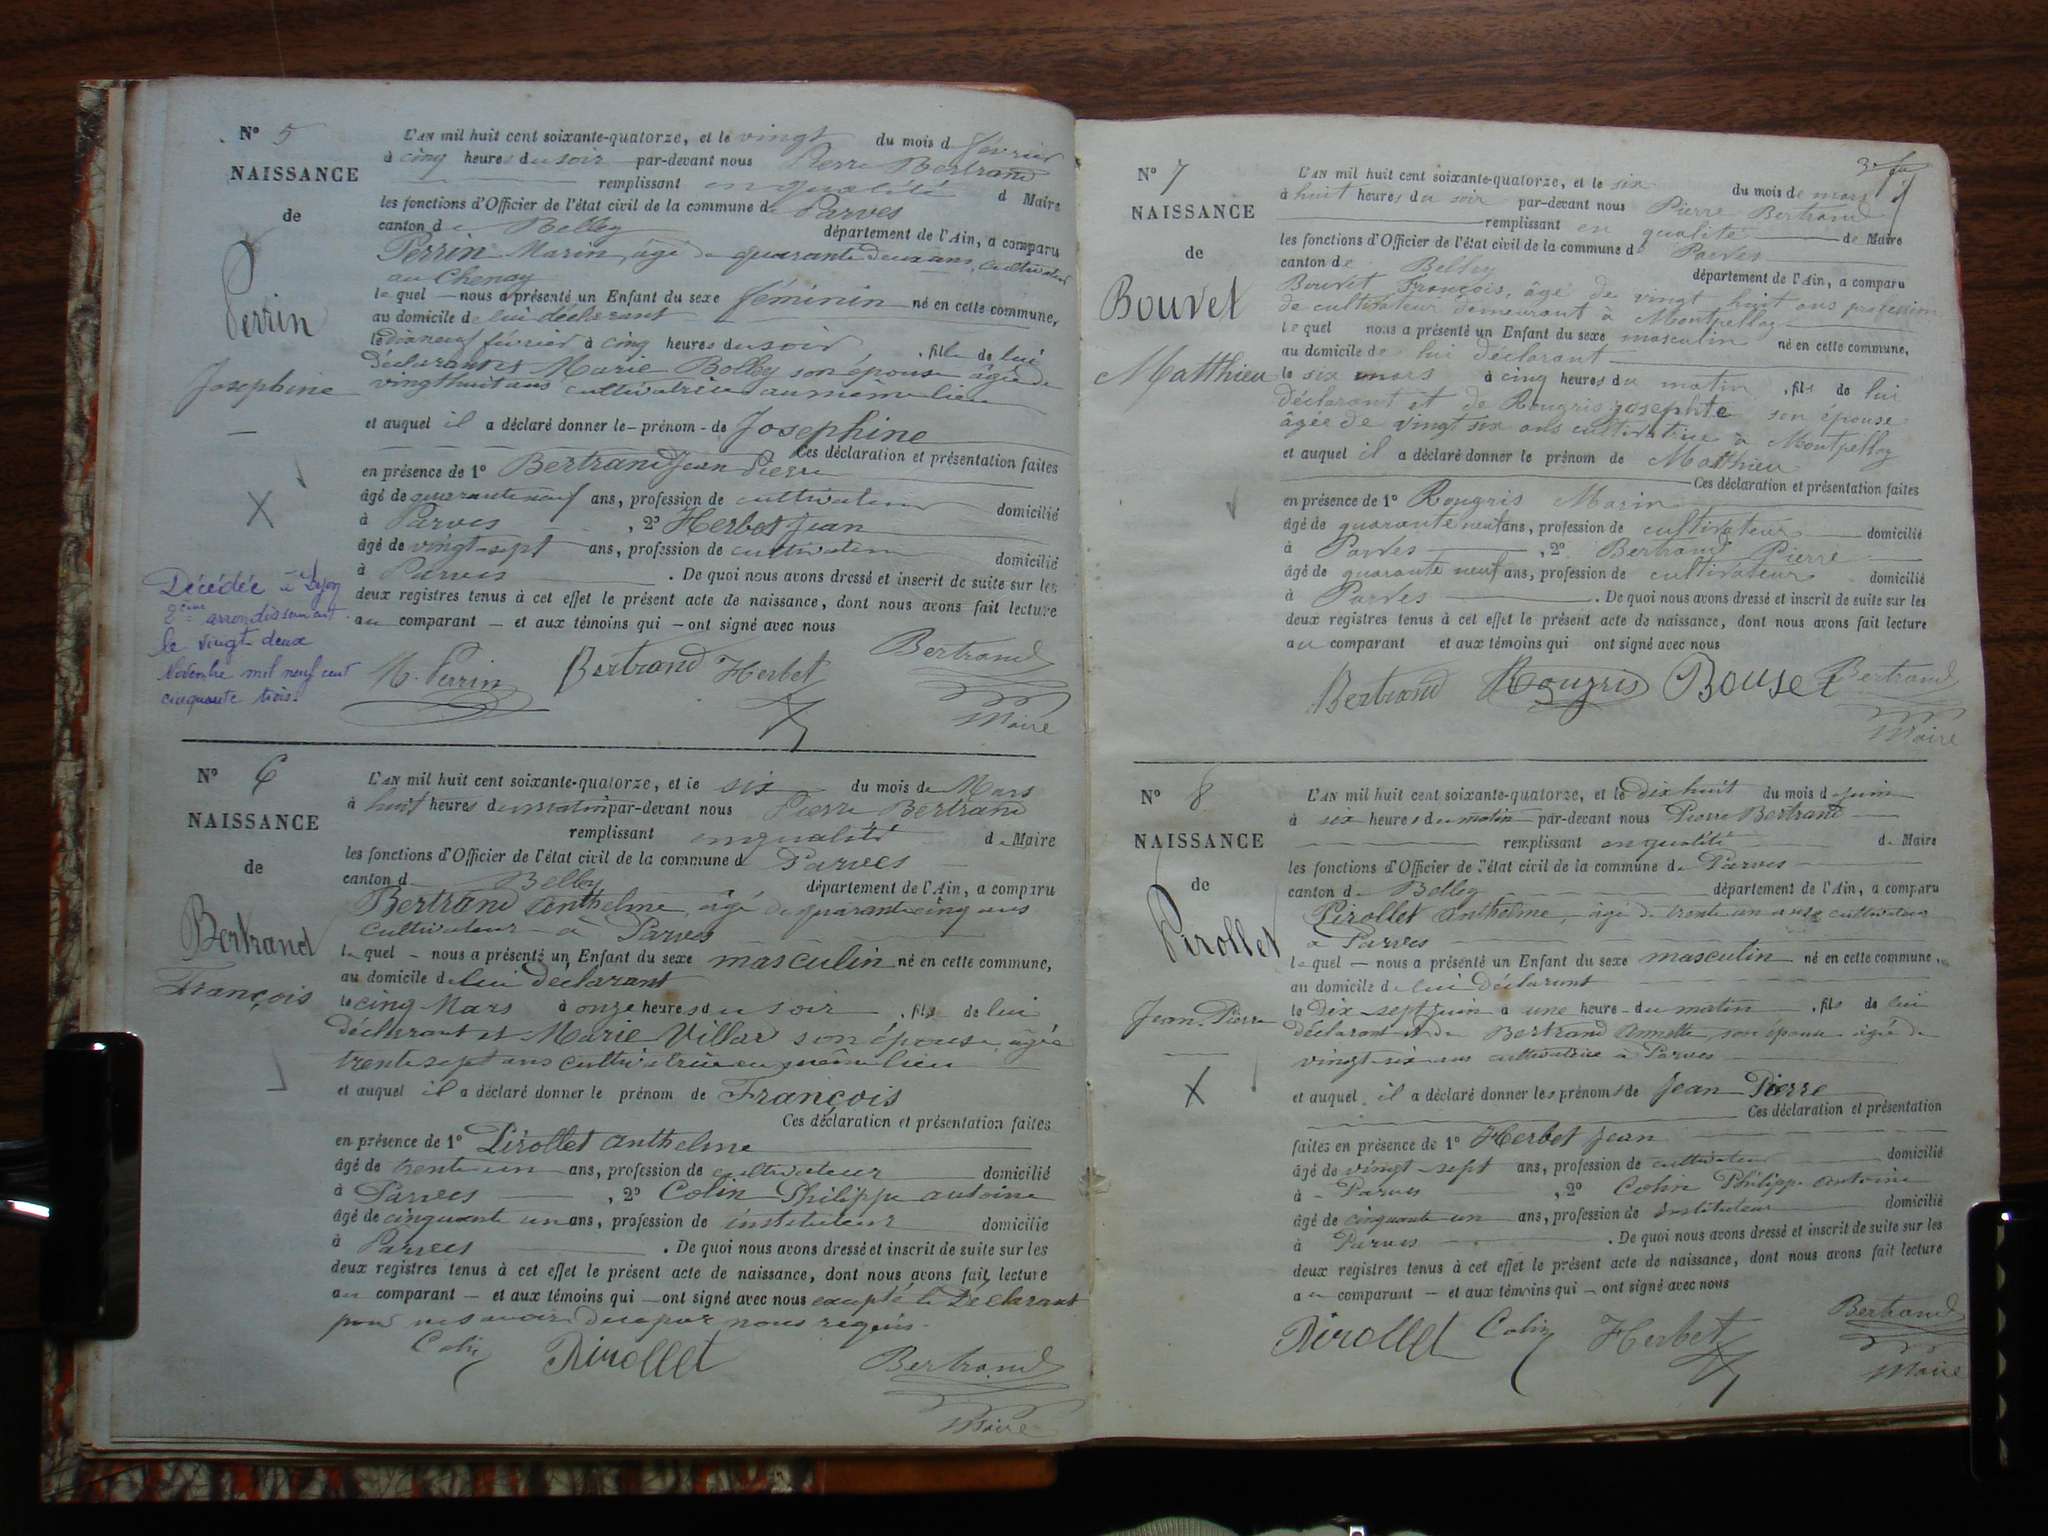 N° 5
NAISSANCE
de
Perrin
Josephine
Décédée à Lyon
2ème arrondissement
le vingt deux
Novembre mil neuf cent
cinquante trois.
L'AN mil huit cent soixante-quatorze, et le vingt du mois d février
à cinq heures du soir par-devant nous Pierre Bertrand
remplissant en qualité d Maire
les fonctions d'Officier de l'état civil de la commune d Parves
canton de Belley département de l'Ain, a comparu
Perrin Marin, âgé de quarante deux ans, cultivateur
au Chenay
lequel – nous a présenté un Enfant du sexe féminin né en cette commune,
au domicile de lui déclarant
le dix neuf février à cinq heures du soir, fille de lui
déclarant et Marie Bolley son épouse âgée de
vingt huit ans cultivatrice au même lieu
et auquel il a déclaré donner le – prénom – de Josephine
Ces déclaration et présentation faites
en présence de 1° Bertrand Jean Pierre
âgé de quarante neuf ans, profession de cultivateur domicilié
à Parves, 2° Herbet Jean
âgé de vingt-sept ans, profession de cultivateur domicilié
à Parves. De quoi nous avons dressé et inscrit de suite sur les
deux registres tenus à cet effet le présent acte de naissance, dont nous avons fait lecture
au comparant – et aux témoins qui – ont signé avec nous
M. Perrin Bertrand Herbet Bertrand
Maire
N° 6
NAISSANCE
de
Bertrand
François
L'AN mil huit cent soixante-quatorze, et le six du mois de Mars
à huit heures du matin par-devant nous Pierre Bertrand
remplissant en qualité de Maire
les fonctions d'Officier de l'état civil de la commune d Parves
canton d Belley département de l'Ain, a comparu
Bertrand Anthelme, âgé de quarante cinq ans
cultivateur à Parves
lequel – nous a présenté un Enfant du sexe masculin né en cette commune,
au domicile de lui déclarant
le cinq Mars à onze heures du soir, fils de lui
déclarant et Marie Villar son épouse, âgée
trente sept ans cultivatrice au même lieu
et auquel il a déclaré donner le prénom de François
Ces déclaration et présentation faites
en présence de 1° Pirollet Anthelme
âgé de trente un ans, profession de cultivateur domicilié
à Parves, 2° Colin Philippe Antoine
âgé de cinquante un ans, profession de instituteur domicilié
à Parves. De quoi nous avons dressé et inscrit de suite sur les
deux registres tenus à cet effet le présent acte de naissance, dont nous avons fait lecture
au comparant – et aux témoins qui – ont signé avec nous excepté le Déclarant
pour ne savoir de ce par nous requis.
Colin Pirollet Bertrand
Maire
N° 7
NAISSANCE
de
Bouvet
Matthieu
L'AN mil huit cent soixante-quatorze, et le six du mois de mars
à huit heures du soir par-devant nous Pierre Bertrand
remplissant en qualité de Maire
les fonctions d'Officier de l'état civil de la commune de Parves
canton de Belley département de l'Ain, a comparu
Bouvet François, âgé de vingt huit ans profession
de cultivateur demeurant à Montpellaz
lequel nous a présenté un Enfant du sexe masculin né en cette commune,
au domicile de lui déclarant
le six mars à cinq heures du matin, fils de lui
déclarant et de Rougris Josephte son épouse
âgée de vingt six ans cultivatrice à Montpellaz
et auquel il a déclaré donner le prénom de Matthieu
Ces déclaration et présentation faites
en présence de 1° Rougris Marin
âgé de quarante neuf ans, profession de cultivateur domicilié
à Parves, 2° Bertrand Pierre
âgé de quarante neuf ans, profession de cultivateur domicilié
à Parves. De quoi nous avons dressé et inscrit de suite sur les
deux registres tenus à cet effet le présent acte de naissance, dont nous avons fait lecture
au comparant et aux témoins qui ont signé avec nous
Bertrand Rougris Bouvet Bertrand
Maire
N° 8
NAISSANCE
de
Pirollet
Jean-Pierre
L'AN mil huit cent soixante-quatorze, et le dix huit du mois de juin
à six heures du matin par-devant nous Pierre Bertrand
remplissant en qualité de Maire
les fonctions d'Officier de l'état civil de la commune de Parves
canton de Belley département de l'Ain, a comparu
Pirollet Anthelme, âgé de trente un ans cultivateur
à Parves
lequel – nous a présenté un Enfant du sexe masculin né en cette commune,
au domicile de lui déclarant
le dix-sept juin à une heure du matin, fils de lui
déclarant et de Bertrand Annette, son épouse âgée de
vingt-six ans cultivatrice à Parves
et auquel il a déclaré donner les prénoms de Jean Pierre
Ces déclaration et présentation
faites en présence de 1° Herbet Jean
âgé de vingt-sept ans, profession de cultivateur domicilié
à Parves, 2° Colin Philippe Antoine
âgé de cinquante un ans, profession de instituteur domicilié
à Parves. De quoi nous avons dressé et inscrit de suite sur les
deux registres tenus à cet effet le présent acte de naissance, dont nous avons fait lecture
au comparant – et aux témoins qui – ont signé avec nous
Pirollet Colin Herbet Bertrand
Maire